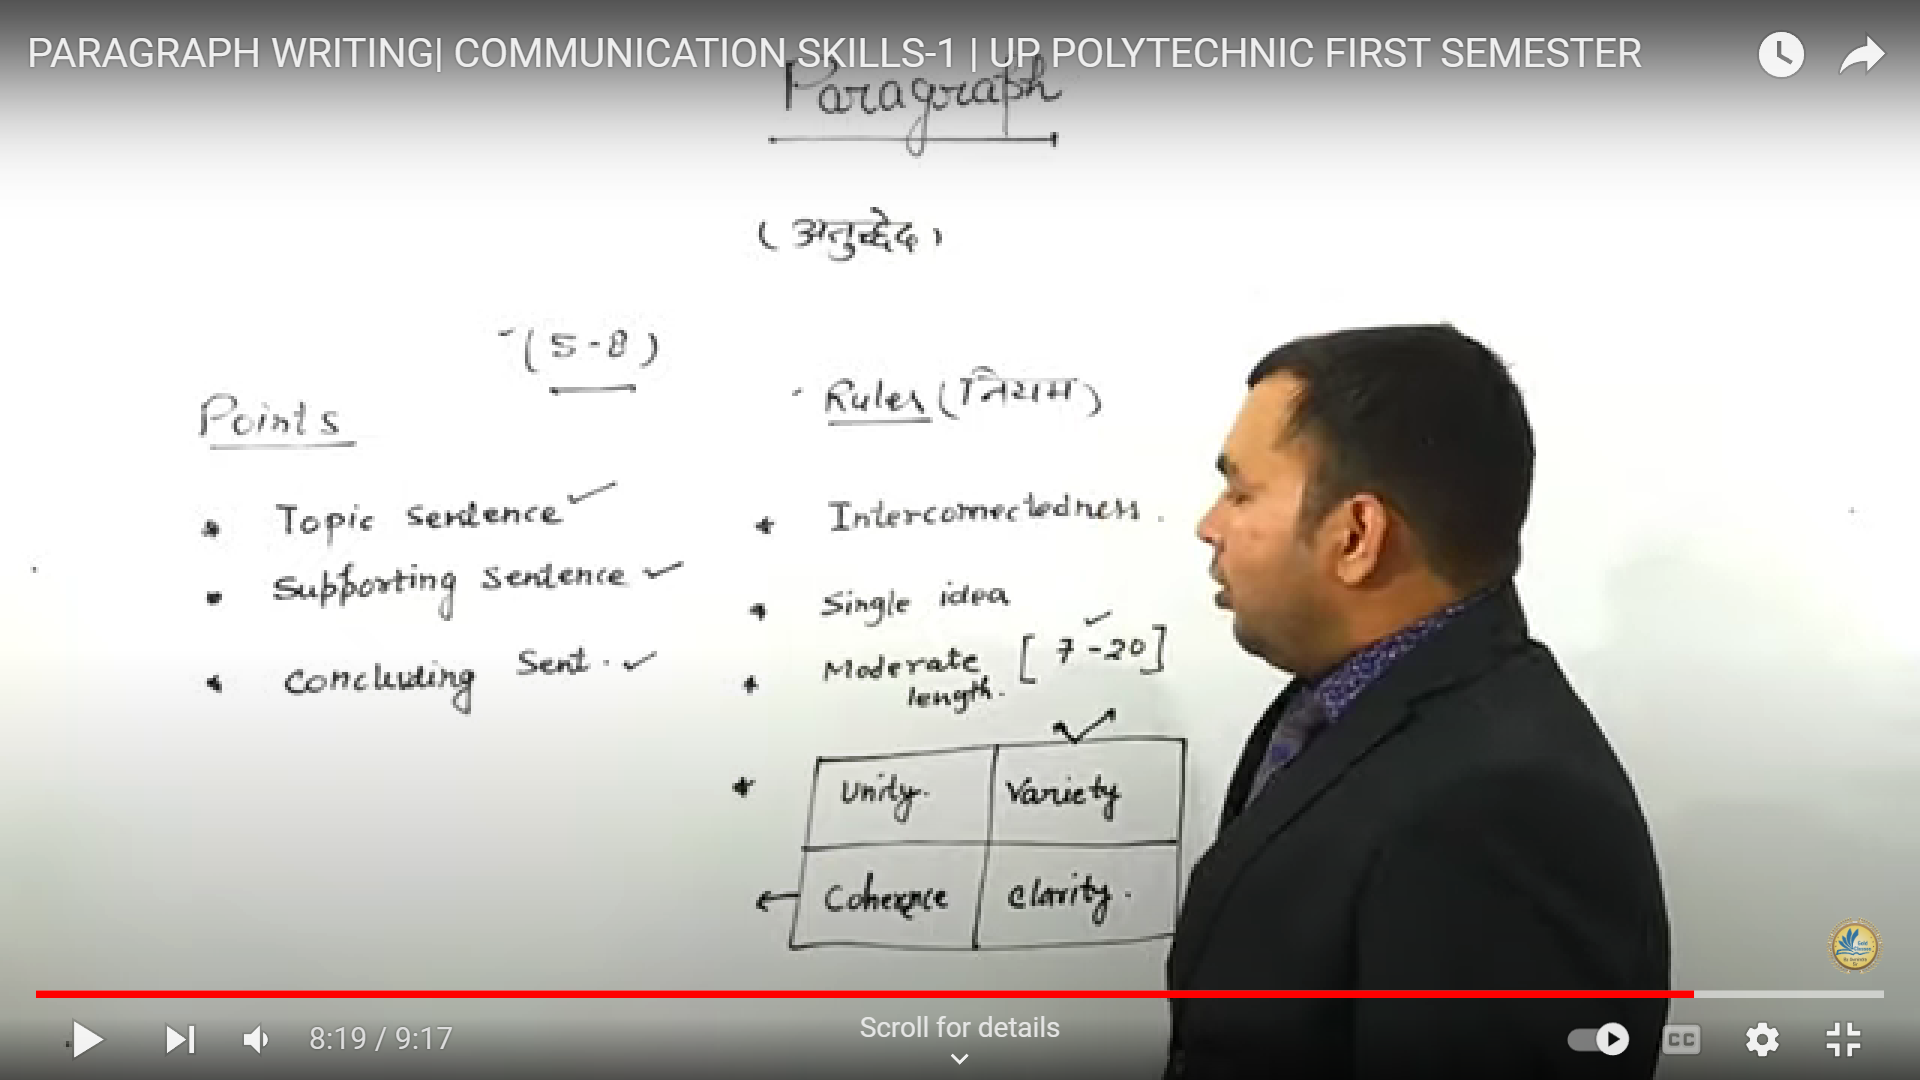 PARAGRAPH WRITING| COMMUNICATION SKILLS-1 | UP POLYTECHNIC FIRST SEMESTER
Paragraph
(अनुच्छेद)
(5-8)
Points
Rules (नियम)
* Topic sentence ✓
* Supporting sentence ✓
* Concluding Sent. ✓
* Interconnectedness.
* Single idea
* Moderate length. [7-20] ✓
* Unity. Variety ✓
Coherence Clarity.
8:19 / 9:17
Scroll for details
CC